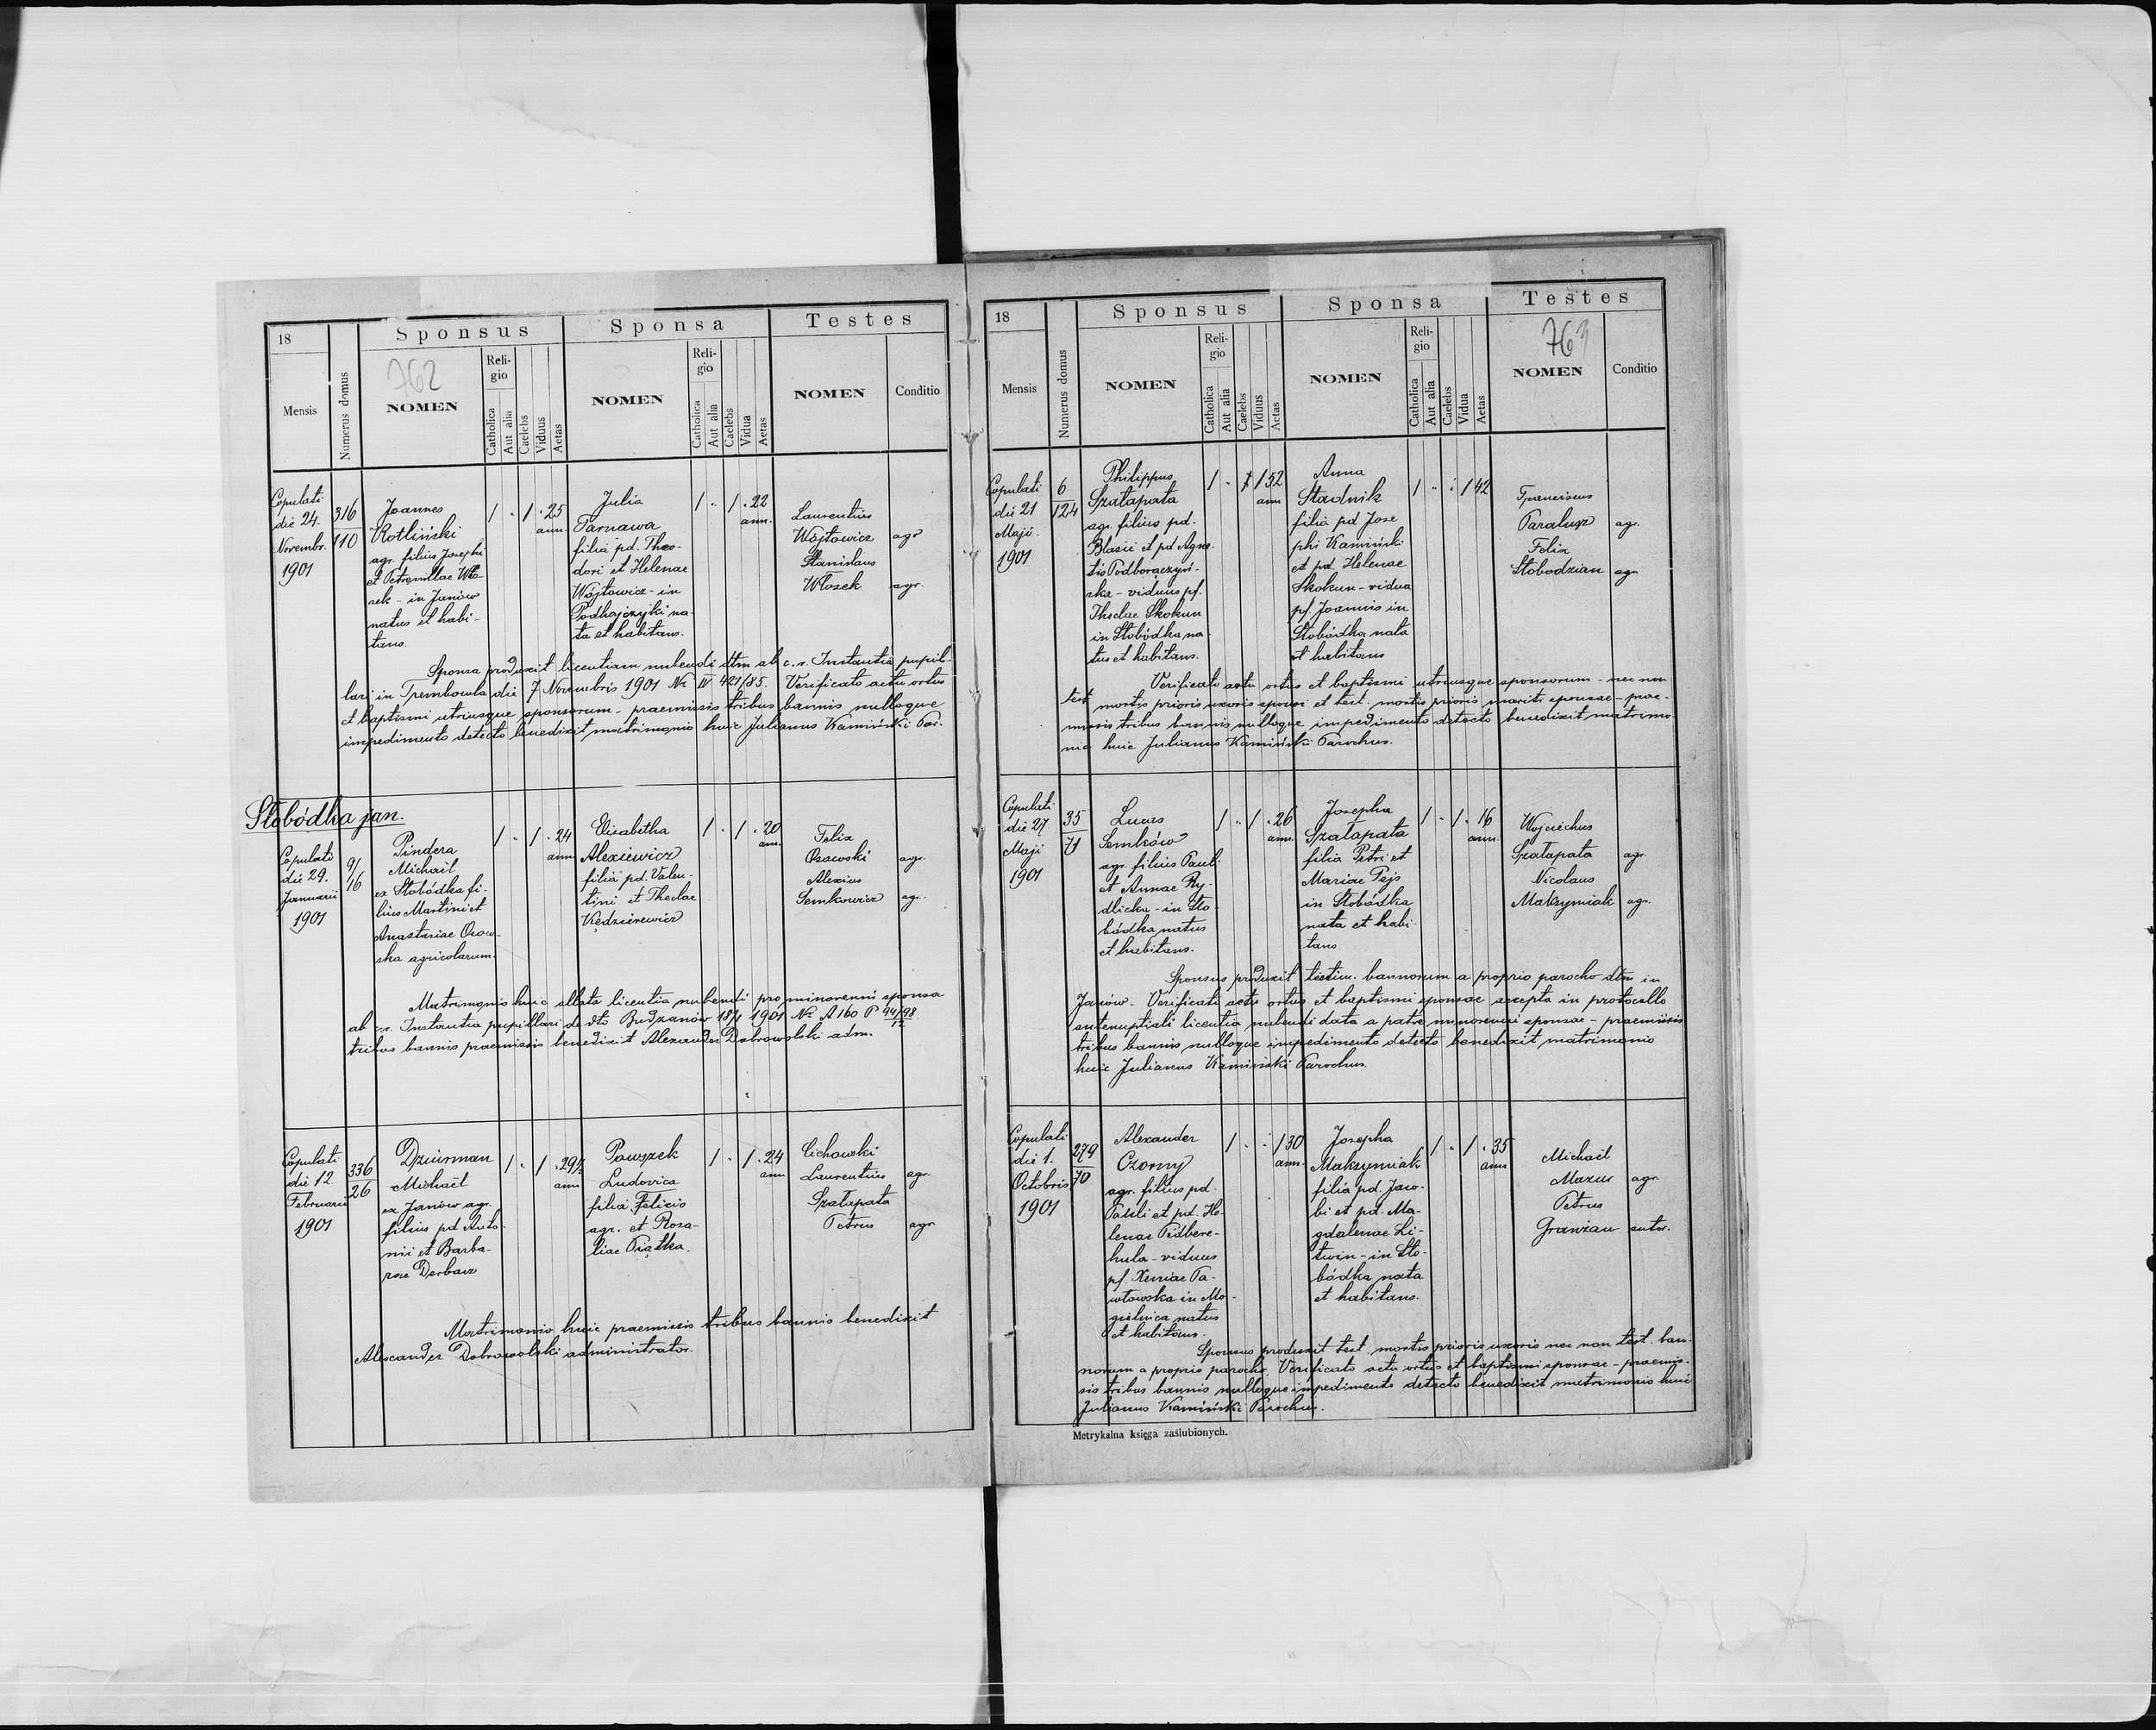 18
Mensis
Numerus domus
Sponsus
762
NOMEN
Religio
Catholica
Aut alia
Caelebs
Viduus
Aetas
Sponsa
NOMEN
Religio
Catholica
Aut alia
Caelebs
Vidua
Aetas
Testes
NOMEN
Conditio
Copulati
die 24.
Novembr.
1901
316
110
Joannes
Kotliński
agr. filius Josephi
et Petronillae Wło-
sek - in Janów
natus et habi-
tans
1 " 1 " 25
ann.
Julia
Tarnawa
filia pd. Theo-
dori et Helenae
Wójtowicz - in
Podhajczyki na-
ta et habitans.
1 " 1 " 22
ann.
Laurentius
Wójtowicz agr.
Stanislaus
Włosek agr.
Sponsa produxit licentiam nubendi dtm ab c. r. Instantia pupil-
lari in Trembowla die 7 Novembris 1901 Nr. IV 421/85. Verificato actu ortus
et baptismi utriusque sponsorum - praemissis tribus bannis nulloque
impedimento detecto benedixit matrimonio huic Julianus Kamiński Par.
Słobódka jan.
Copulati
die 29.
Januarii
1901
9/
16
Pindera
Michaël
ex Słobódka fi-
lius Martini et
Anastasiae Osow-
ska agricolarum.
1 " 1 " 24
ann.
Elisabetha
Alexiewicz
filia pd. Valen-
tini et Theclae
Kędzierewicz
1 " 1 " 20
ann.
Felix
Osowski agr.
Alexius
Semkowicz agr.
Matrimonio huic allata licentia nubendi pro minorenni sponsa
ab c.r. Instantia pupillari de dto Budzanów 18/1 1901 Nr. A 160 P 94/98
12
tribus bannis praemissis benedixit Alexander Dobrowolski adm.
Copulati
die 12
Februarii
1901
336
26
Dziurman
Michaël
ex Janów agr.
filius pd Anto-
nii et Barba-
rae Derbasz
1 " 1 " 29½
ann
Pawszek
Ludovica
filia Felicis
agr. et Rosa-
liae Piątka.
1 " 1 " 24
ann
Cichowski
Laurentius agr.
Szałapata
Petrus agr
Matrimonio huic praemissis tribus bannis benedixit
Alexander Dobrowolski administrator.
18
Mensis
Numerus domus
Sponsus
NOMEN
Religio
Catholica
Aut alia
Caelebs
Viduus
Aetas
Sponsa
NOMEN
Religio
Catholica
Aut alia
Caelebs
Vidua
Aetas
Testes
763
NOMEN
Conditio
Copulati
die 21
Maji.
1901
6
124
Philippus
Szałapata
agr. filius pd.
Blasii et pd Agne-
tis Podborączyń-
ska - viduus pf.
Theclae Skokun
in Słobódka na-
tus et habitans.
1 " 1 52
ann
Anna
Stadnik
filia pd Jose
phi Kamiński
et pd. Helenae
Skokun - vidua
pf. Joannis in
Słobódka nata
et habitans
1 " : 1 42
Franciscus
Paralusz agr.
Felix
Słobodzian agr
Verificato actu ortus et baptismi utriusque sponsorum - nec non
test mortis prioris uxoris sponsi et test. mortis prioris mariti sponsae - prae-
missis tribus bannis nulloque impedimento detecto benedixit matrimo
nio huic Julianus Kamiński Parochus.
Copulati
die 27
Maji
1901
35
71
Lucas
Semków
agr. filius Pauli
et Annae Ry-
dlicka - in Sło-
bódka natus
et habitans.
1 " 1 " 26
ann.
Josepha
Szałapata
filia Petri et
Mariae Pejs
in Słobódka
nata et habi-
tans
1 " 1 " 16
ann.
Wojciechus
Szałapata agr.
Nicolaus
Maksymiak agr.
Sponsus produxit testim. bannorum a proprio parocho dtm in
Janów - Verificato actu ortus et baptismi sponsae accepta in protocollo
antenuptiali licentia nubendi data a patre minorennis sponsae - praemissis
tribus bannis nulloque impedimento detecto benedixit matrimonio
huic Julianus Kamiński Parochus.
Copulati
die 1.
Octobris
1901
279
70
Alexander
Czorny
agr. filius pd.
Pauli et pd. He-
lenae Pidbere-
hula - viduus
pf. Xeniae Pa-
włowska in Mo-
gielnica natus
et habitans.
1 " " 1 30
ann.
Josepha
Maksymiak
filia pd. Jaco-
bi et pd. Ma-
gdalenae Li-
twin - in Sło-
bódka nata
et habitans.
1 " 1 " 35
ann
Michaël
Mazur agr.
Petrus
Granżan sutor.
Sponsus produxit test. mortis prioris uxoris nec non test. ban-
norum a proprio parocho. Verificato actu ortus et baptismi sponsae - praemis-
sis tribus bannis nulloque impedimento detecto benedixit matrimonio huic
Julianus Kamiński Parochus.
Metrykalna księga zaślubionych.